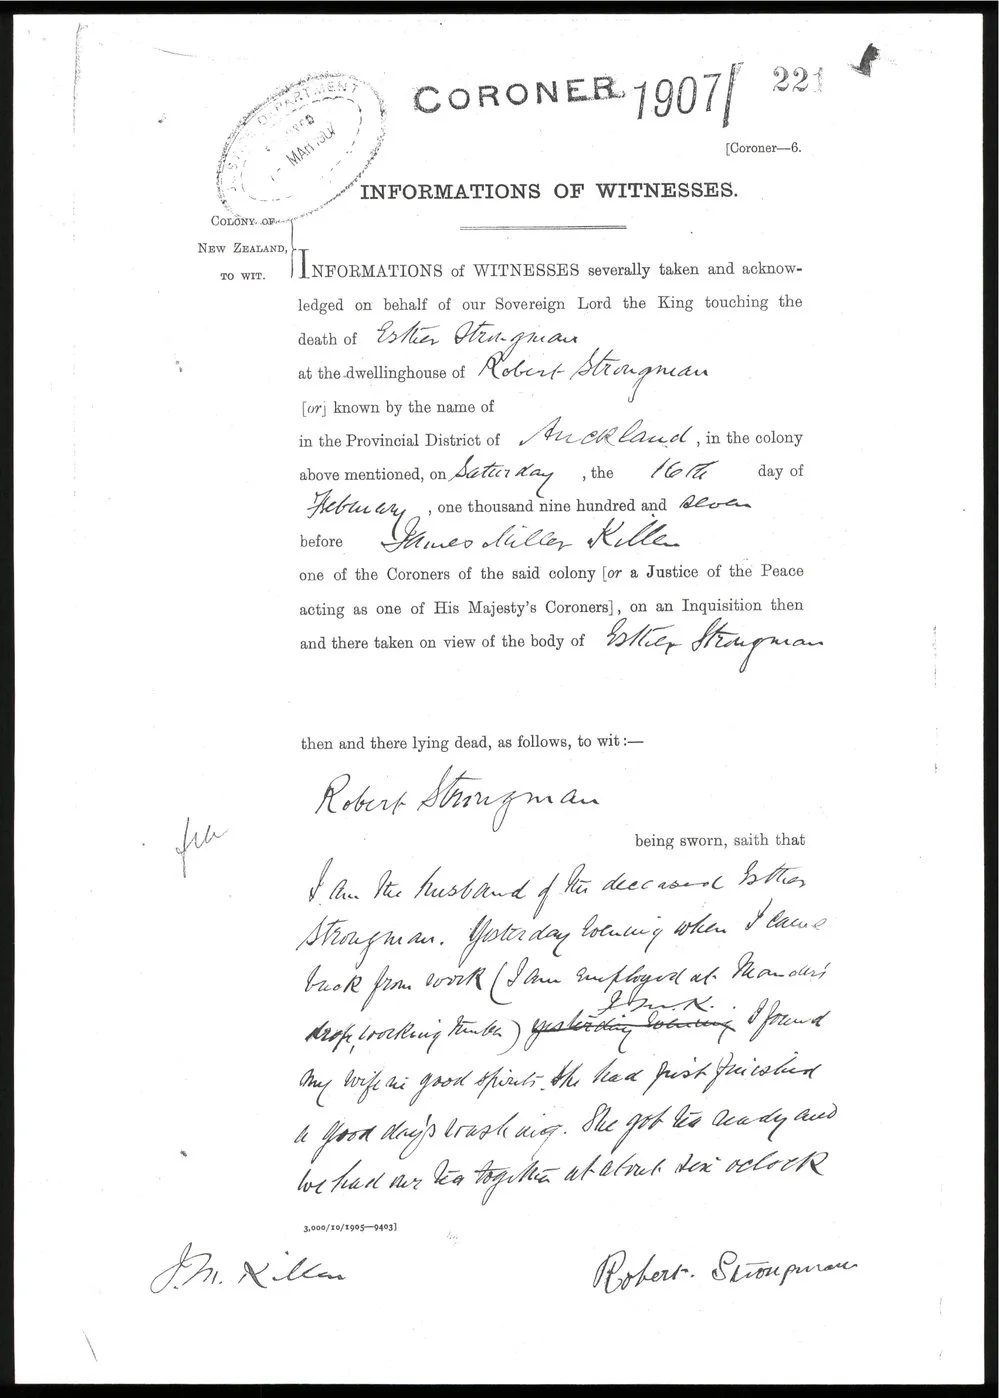 CORONER 1907/ 221
JUSTICE DEPARTMENT
MAR 1907
[Coroner—6.
INFORMATIONS OF WITNESSES.
COLONY OF
NEW ZEALAND,
TO WIT.
INFORMATIONS of WITNESSES severally taken and acknow-
ledged on behalf of our Sovereign Lord the King touching the
death of Esther Strongman
at the dwellinghouse of Robert Strongman
[or] known by the name of
in the Provincial District of Auckland, in the colony
above mentioned, on Saturday, the 16th day of
February, one thousand nine hundred and seven
before James Miller Killen
one of the Coroners of the said colony [or a Justice of the Peace
acting as one of His Majesty's Coroners], on an Inquisition then
and there taken on view of the body of Esther Strongman
then and there lying dead, as follows, to wit:—
Robert Strongman
being sworn, saith that
I am the husband of the deceased Esther
Strongman. Yesterday evening when I came
back from work (I am employed at Mander's
J.M.K.
working timber) yesterday evening I found
my wife in good spirits. She had just finished
a good day's washing. She got tea ready and
we had our tea together at about six oclock
3,000/10/1905—9403]
J.M. Killen Robert Strongman